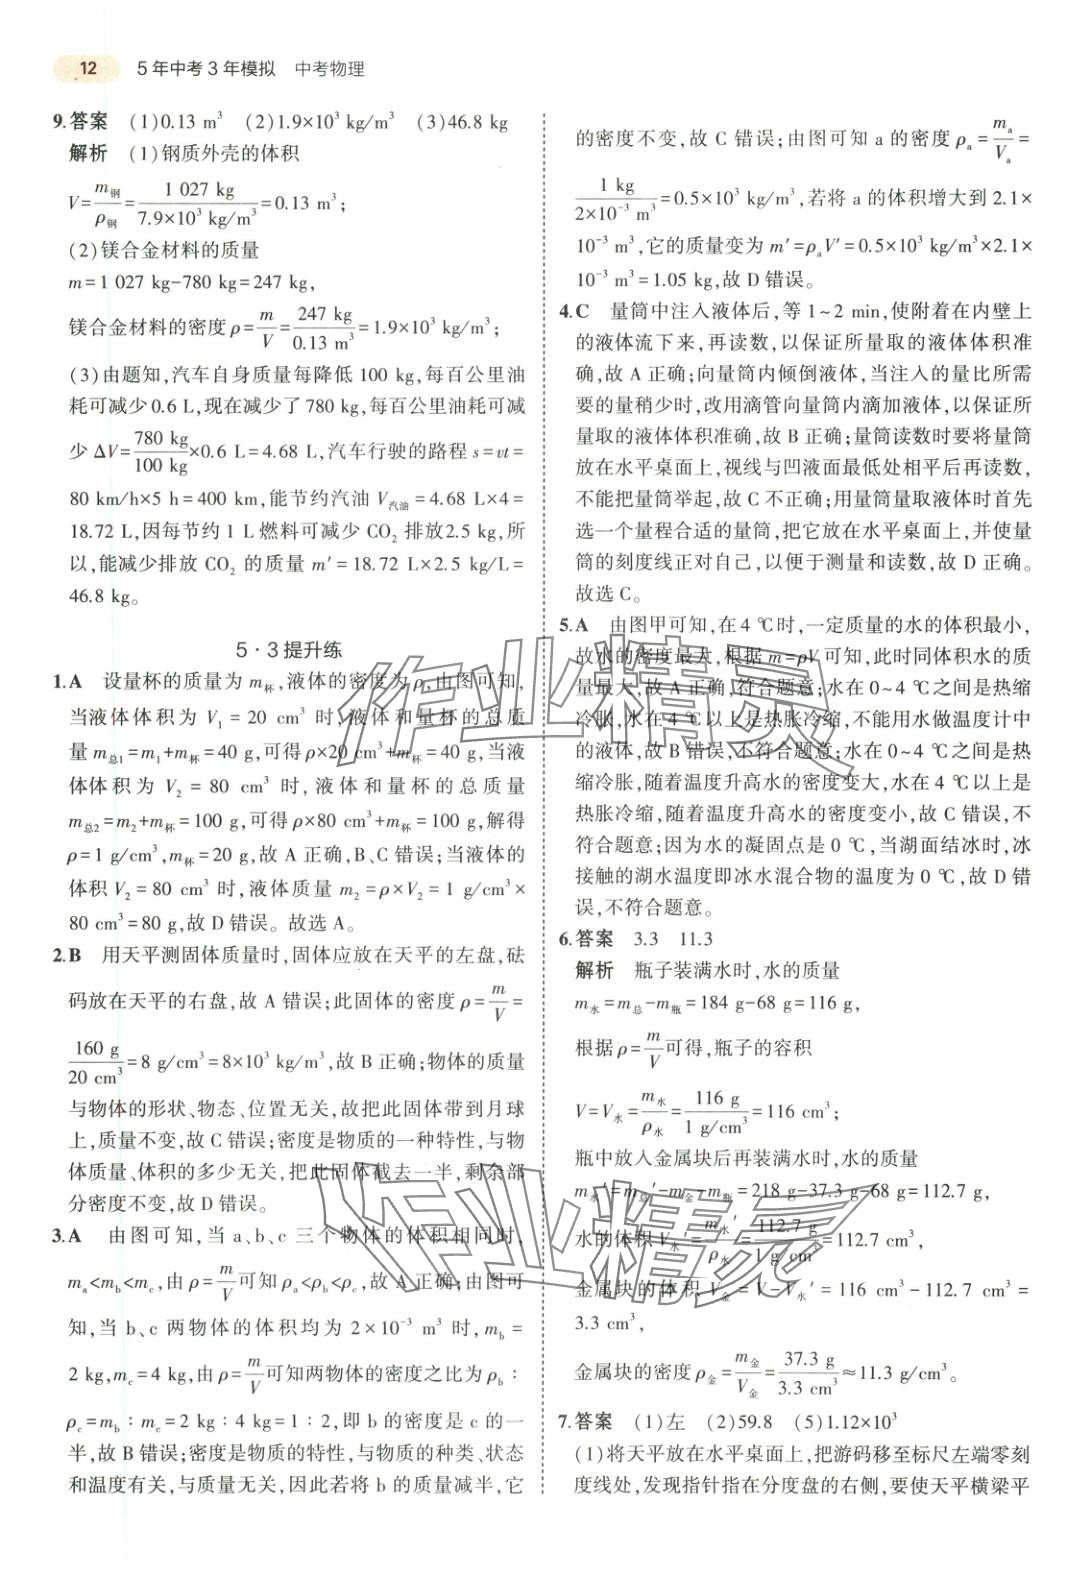 12 5年中考3年模拟 中考物理
9.答案 (1)0.13 m³ (2)1.9×10³ kg/m³ (3)46.8 kg
解析 (1)钢质外壳的体积
V=m钢/ρ钢=1 027 kg/7.9×10³ kg/m³=0.13 m³；
(2)镁合金材料的质量
m=1 027 kg-780 kg=247 kg，
镁合金材料的密度ρ=m/V=247 kg/0.13 m³=1.9×10³ kg/m³；
(3)由题知，汽车自身质量每降低 100 kg，每百公里油
耗可减少0.6 L，现在减少了780 kg，每百公里油耗可减
少 ΔV=780 kg/100 kg×0.6 L=4.68 L，汽车行驶的路程 s=vt=
80 km/h×5 h=400 km，能节约汽油 V汽油=4.68 L×4=
18.72 L，因每节约 1 L燃料可减少 CO₂ 排放2.5 kg，所
以，能减少排放 CO₂ 的质量 m′=18.72 L×2.5 kg/L=
46.8 kg。
5·3提升练
1.A 设量杯的质量为 m杯，液体的密度为 ρ，由图可知，
当液体体积为 V₁=20 cm³ 时，液体和量杯的总质
量 m总1=m₁+m杯=40 g，可得ρ×20 cm³+m杯=40 g，当液
体体积为 V₂=80 cm³ 时，液体和量杯的总质量
m总2=m₂+m杯=100 g，可得ρ×80 cm³+m杯=100 g，解得
ρ=1 g/cm³，m杯=20 g，故 A 正确，B、C 错误；当液体的
体积 V₂=80 cm³ 时，液体质量 m₂=ρ×V₂=1 g/cm³×
80 cm³=80 g，故 D 错误。故选 A。
2.B 用天平测固体质量时，固体应放在天平的左盘，砝
码放在天平的右盘，故 A 错误；此固体的密度 ρ=m/V=
160 g/20 cm³=8 g/cm³=8×10³ kg/m³，故 B 正确；物体的质量
与物体的形状、物态、位置无关，故把此固体带到月球
上，质量不变，故C错误；密度是物质的一种特性，与物
体质量、体积的多少无关，把此固体截去一半，剩余部
分密度不变，故 D 错误。
3.A 由图可知，当 a、b、c 三个物体的体积相同时，
mₐ<m_b<m_c，由 ρ=m/V可知 ρₐ<ρ_b<ρ_c，故 A 正确；由图可
知，当 b、c 两物体的体积均为 2×10⁻³ m³ 时，m_b=
2 kg，m_c=4 kg，由 ρ=m/V可知两物体的密度之比为 ρ_b：
ρ_c=m_b：m_c=2 kg：4 kg=1：2，即 b 的密度是 c 的一
半，故 B 错误；密度是物质的特性，与物质的种类、状态
和温度有关，与质量无关，因此若将 b 的质量减半，它
的密度不变，故 C 错误；由图可知 a 的密度 ρₐ=mₐ/Vₐ=
1 kg/2×10⁻³ m³=0.5×10³ kg/m³，若将 a 的体积增大到 2.1×
10⁻³ m³，它的质量变为 m′=ρₐV′=0.5×10³ kg/m³×2.1×
10⁻³ m³=1.05 kg，故 D 错误。
4.C 量筒中注入液体后，等 1~2 min，使附着在内壁上
的液体流下来，再读数，以保证所量取的液体体积准
确，故 A 正确；向量筒内倾倒液体，当注入的量比所需
要的量稍少时，改用滴管向量筒内滴加液体，以保证所
量取的液体体积准确，故 B 正确；量筒读数时要将量筒
放在水平桌面上，视线与凹液面最低处相平后再读数，
不能把量筒举起，故 C 不正确；用量筒量取液体时首先
选一个量程合适的量筒，把它放在水平桌面上，并使量
筒的刻度线正对自己，以便于测量和读数，故 D 正确。
故选 C。
5.A 由图甲可知，在 4 ℃时，一定质量的水的体积最小，
故水的密度最大，根据 m=ρV 可知，此时同体积水的质
量最大，故 A 正确，符合题意；水在 0~4 ℃之间是热缩
冷胀，水在 4 ℃以上是热胀冷缩，不能用水做温度计中
的液体，故 B 错误，不符合题意；水在 0~4 ℃之间是热
缩冷胀，随着温度升高水的密度变大，水在 4 ℃以上是
热胀冷缩，随着温度升高水的密度变小，故 C 错误，不
符合题意；因为水的凝固点是 0 ℃，当湖面结冰时，冰
接触的湖水温度即冰水混合物的温度为 0 ℃，故 D 错
误，不符合题意。
6.答案 3.3 11.3
解析 瓶子装满水时，水的质量
m水=m总-m瓶=184 g-68 g=116 g，
根据ρ=m/V可得，瓶子的容积
V=V水=m水/ρ水=116 g/1 g/cm³=116 cm³；
瓶中放入金属块后再装满水时，水的质量
m水′=m总′-m金-m瓶=218 g-37.3 g-68 g=112.7 g，
水的体积 V水′=m水′/ρ水=112.7 g/1 g/cm³=112.7 cm³，
金属块的体积 V金=V-V水′=116 cm³-112.7 cm³=
3.3 cm³，
金属块的密度 ρ金=m金/V金=37.3 g/3.3 cm³≈11.3 g/cm³。
7.答案 (1)左 (2)59.8 (5)1.12×10³
(1)将天平放在水平桌面上，把游码移至标尺左端零刻
度线处，发现指针指在分度盘的右侧，要使天平横梁平
作业精灵
作业精灵